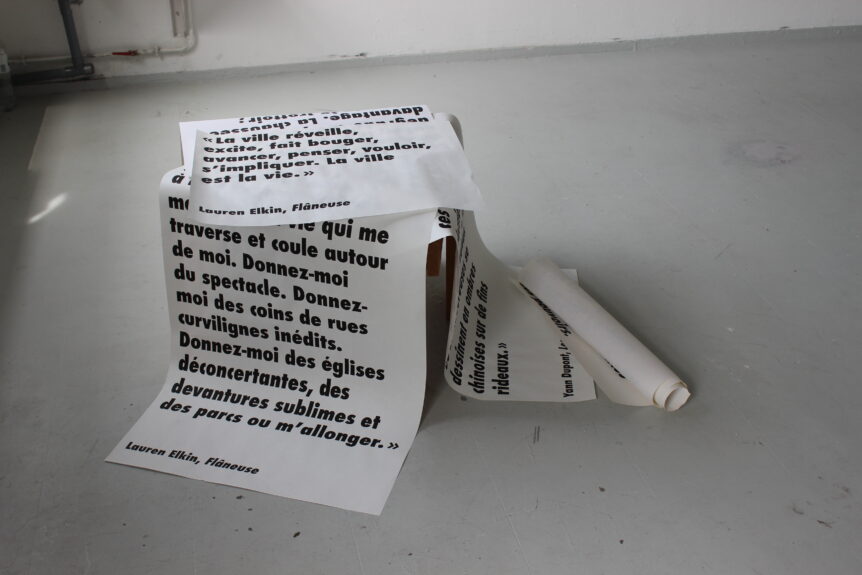 davantage. La chaussée
trottoir.
«La ville réveille,
excite, fait bouger,
avancer, penser, vouloir,
s'impliquer. La ville
est la vie.»
Lauren Elkin, Flâneuse
à
qui me
traverse et coule autour
de moi. Donnez-moi
du spectacle. Donnez-
moi des coins de rues
curvilignes inédits.
Donnez-moi des églises
déconcertantes, des
devantures sublimes et
des parcs ou m'allonger.»
Lauren Elkin, Flâneuse
dessinent en ombres
chinoises sur de fins
rideaux.»
Yann Dupont,